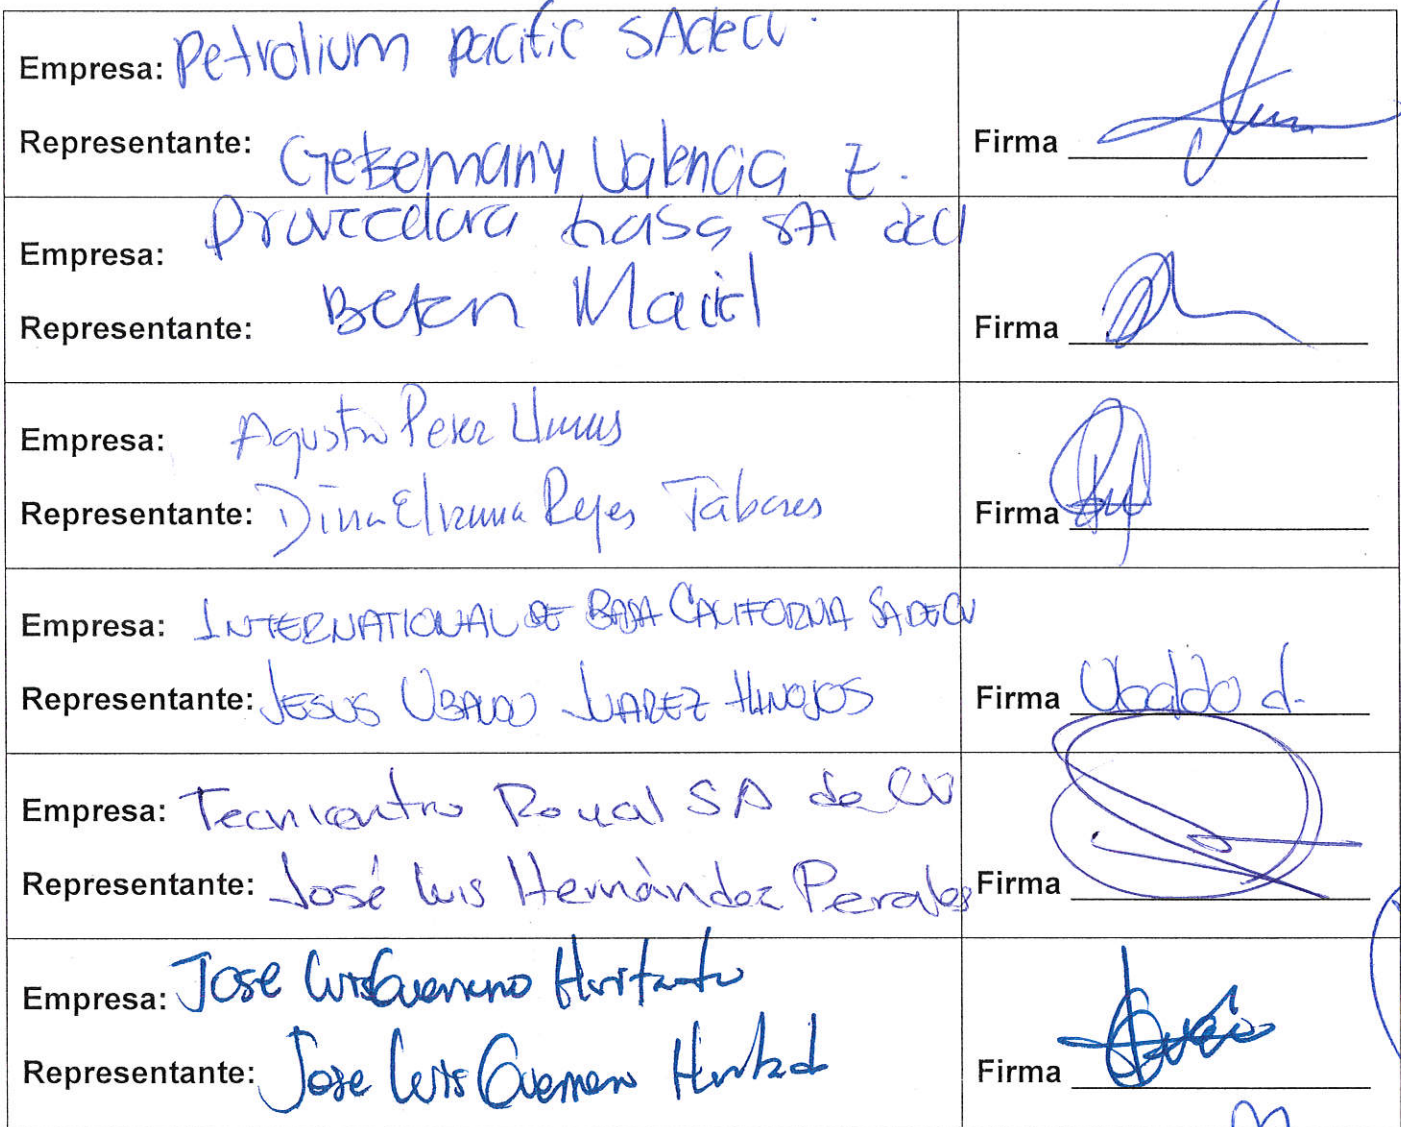 Empresa: Petrolium pacific SAdecv.
Representante: Getsemany Valencia Z.
Firma
Empresa: Proveedora SA decv
Representante: Belen Maciel
Firma
Empresa: Agustin Perez
Representante: Dina Reyes Tabares
Firma
Empresa: INTERNATIONAL DE BAJA CALIFORNIA SA DE CV
Representante: JESUS UBALDO JUAREZ HINOJOS
Firma Ubaldo J.
Empresa: Tecnicentro Royal SA de CV
Representante: José Luis Hernández Perales
Firma
Empresa: Jose Luis Guerrero Hurtado
Representante: Jose Luis Guerrero Hurtado
Firma